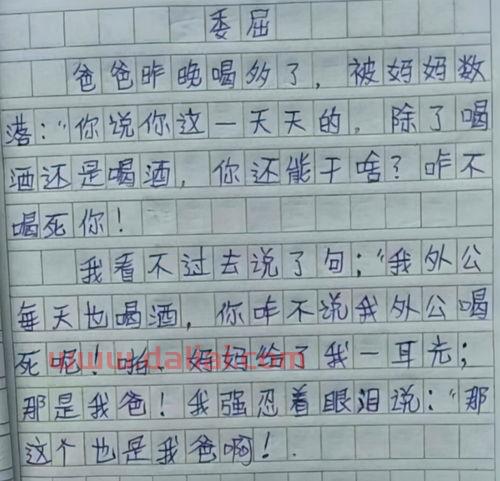 委屈
爸爸昨晚喝多了，被妈妈数
落："你说你这一天天的，除了喝
酒还是喝酒，你还能干啥？咋不
喝死你！
我看不过去说了句；"我外公
每天也喝酒，你咋不说我外公喝
死呢！啪、妈妈给了我一耳光；
那是我爸！我强忍着眼泪说："那
这个也是我爸啊！